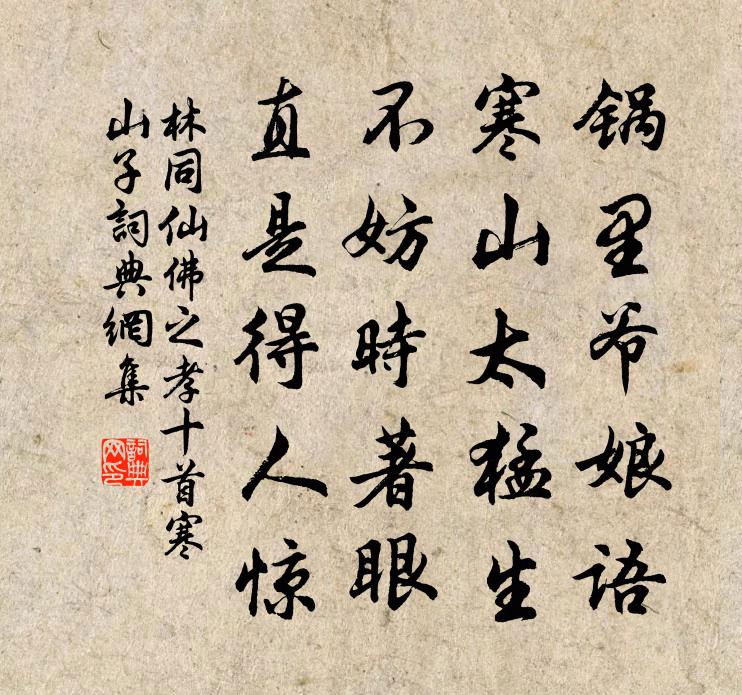 锅里爷娘语
寒山太猛生
不妨時著眼
直是得人惊
林同仙佛之孝十首寒
山子詞典網集
詞典
网印